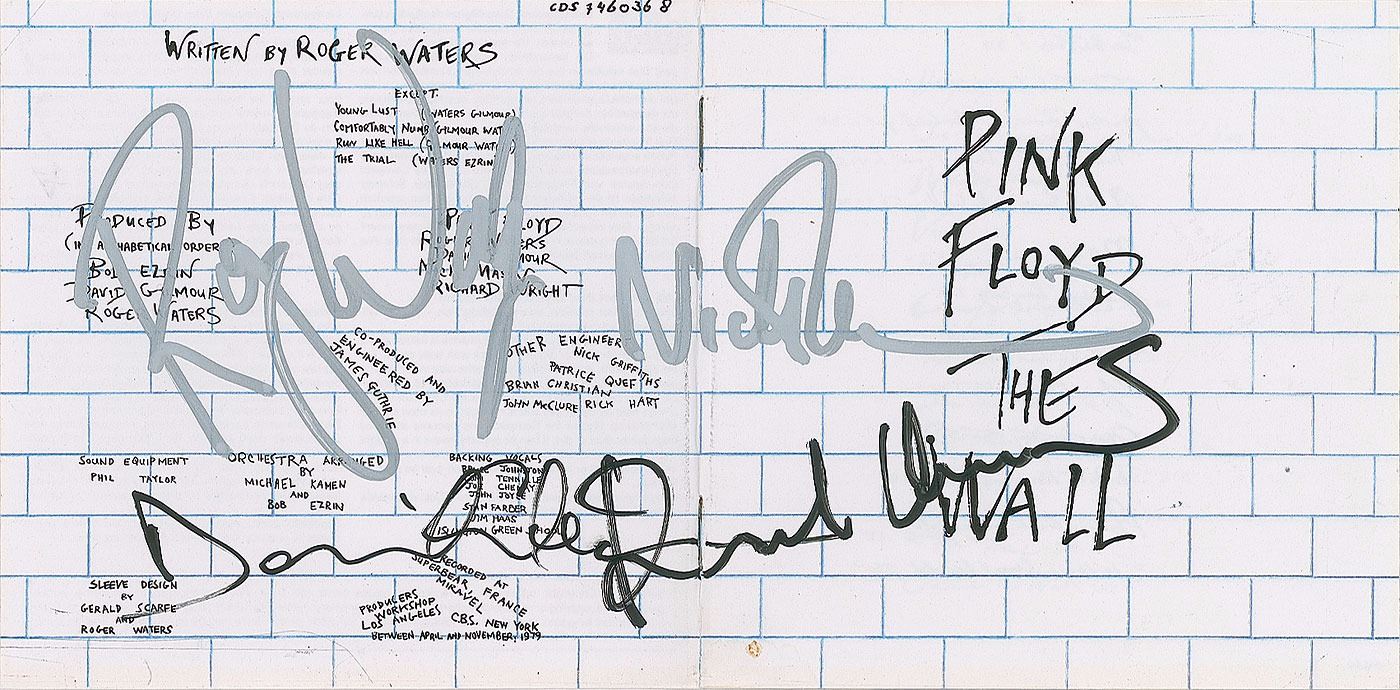 CDS 746036 8
WRITTEN BY ROGER WATERS
EXCEPT.
YOUNG LUST (WATERS GILMOUR)
COMFORTABLY NUMB (GILMOUR WAT
RUN LIKE HELL (GILMOUR WAT
THE TRIAL (WATERS EZRIN
PRODUCED BY
(IN ALPHABETICAL ORDER
BOB EZRIN
DAVID GILMOUR
ROGER WATERS
PINK FLOYD
ROGER WATERS
DAVID GILMOUR
NICK MASON
RICHARD WRIGHT
CO-PRODUCED AND
ENGINEERED BY
JAMES GUTHRIE
OTHER ENGINEER
NICK GRIFFITHS
PATRICE QUEF THS
BRIAN CHRISTIAN
JOHN McCLURE RICK HART
SOUND EQUIPMENT
PHIL TAYLOR
ORCHESTRA ARRANGED
BY
MICHAEL KAMEN
AND
BOB EZRIN
BACKING VOCALS
BRUCE JOHNSTON
TONI TENNILLE
JOE CHEMAY
JOHN JOYCE
STAN FARBER
JIM HAAS
ISLINGTON GREEN SCHOOL
SLEEVE DESIGN
BY
GERALD SCARFE
AND
ROGER WATERS
RECORDED AT
SUPERBEAR, FRANCE
MIRAVEL
PRODUCERS
WORKSHOP
LOS ANGELES C.B.S. NEW YORK
BETWEEN APRIL AND NOVEMBER, 1979
PINK
FLOYD
THE
WALL